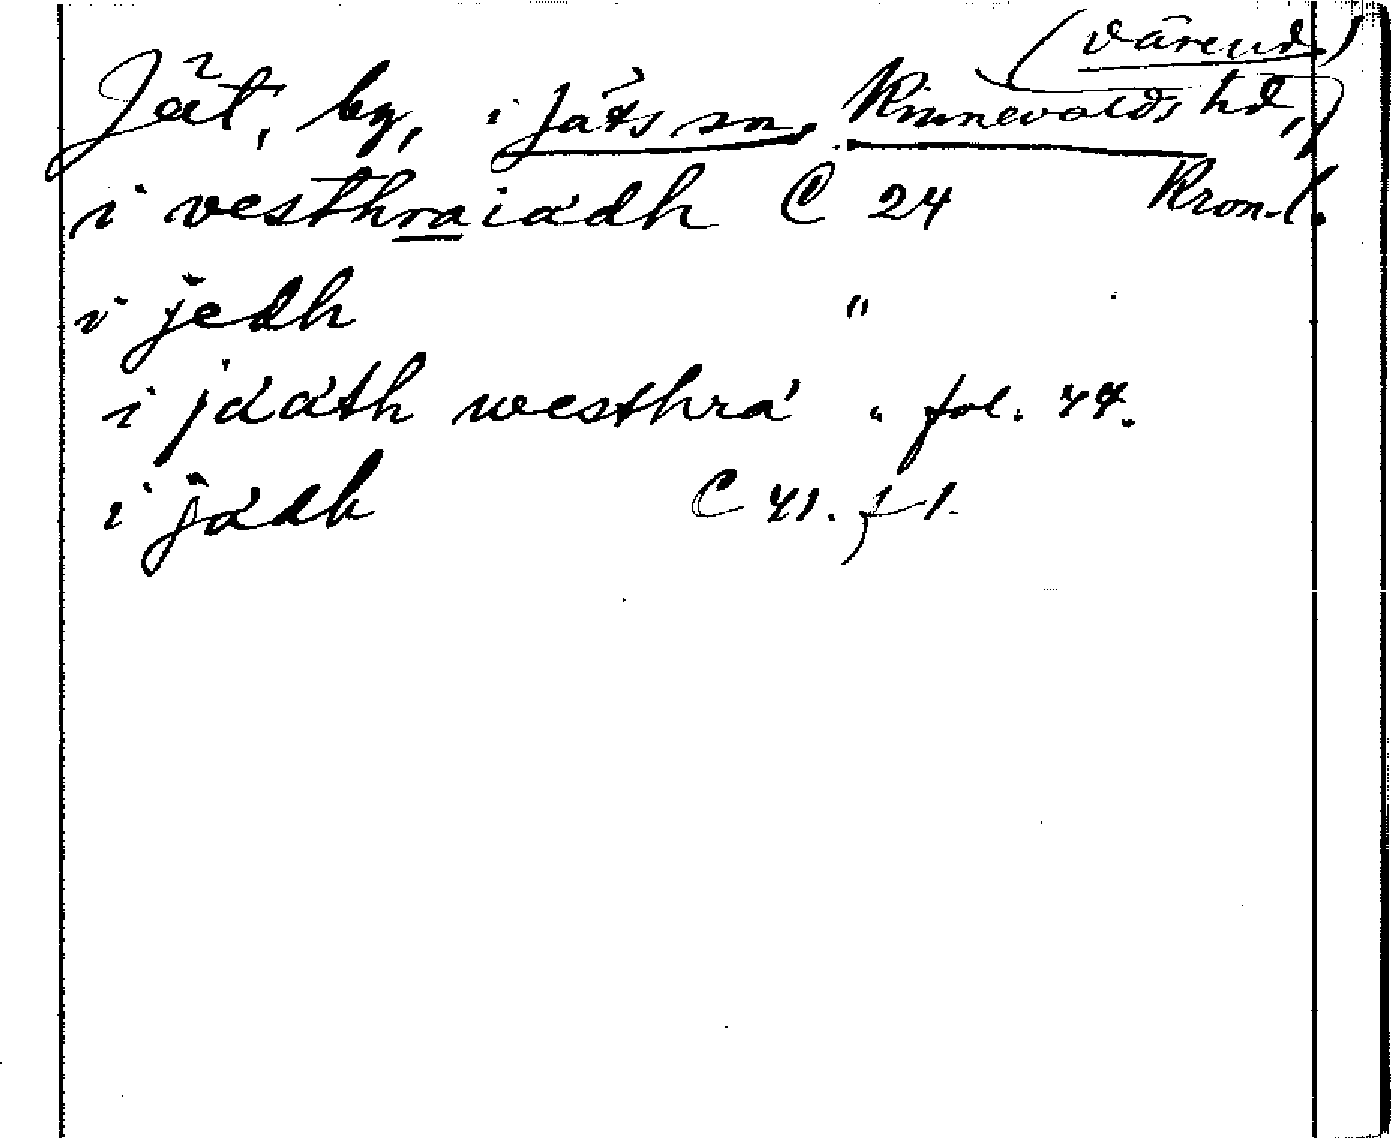 (Värend.)
Jät, by, i Jäts sn, Kinnevalds hd,
i vesthraiädh C 24 Kron.l.
i jedh "
i jääth westhrä " fol. 44.
i jädh C 41. f 1.